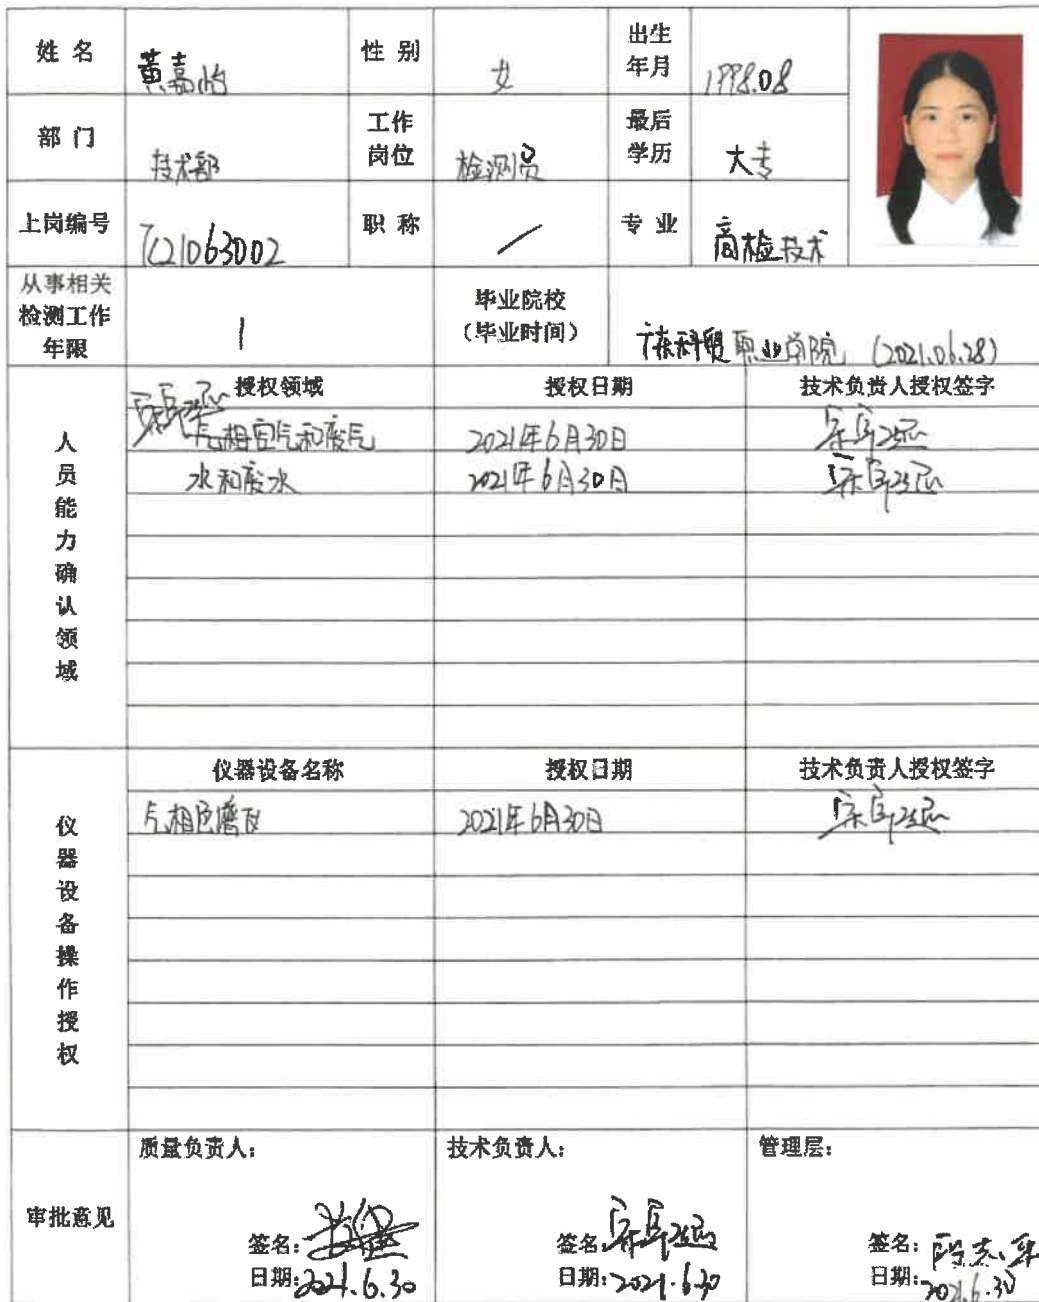 姓名 黄嘉怡 性别 女 出生年月 1998.08
部门 技术部 工作岗位 检测员 最后学历 大专
上岗编号 TC21063002 职称 / 专业 商检技术
从事相关检测工作年限 1 毕业院校（毕业时间） 广东科贸职业学院 (2021.06.28)
人员能力确认领域
授权领域 授权日期 技术负责人授权签字
空气和废气 2021年6月30日
水和废水 2021年6月30日
仪器设备操作授权
仪器设备名称 授权日期 技术负责人授权签字
气相色谱仪 2021年6月30日
审批意见
质量负责人： 技术负责人： 管理层：
签名： 签名： 签名：
日期：2021.6.30 日期：2021.6.30 日期：2021.6.30